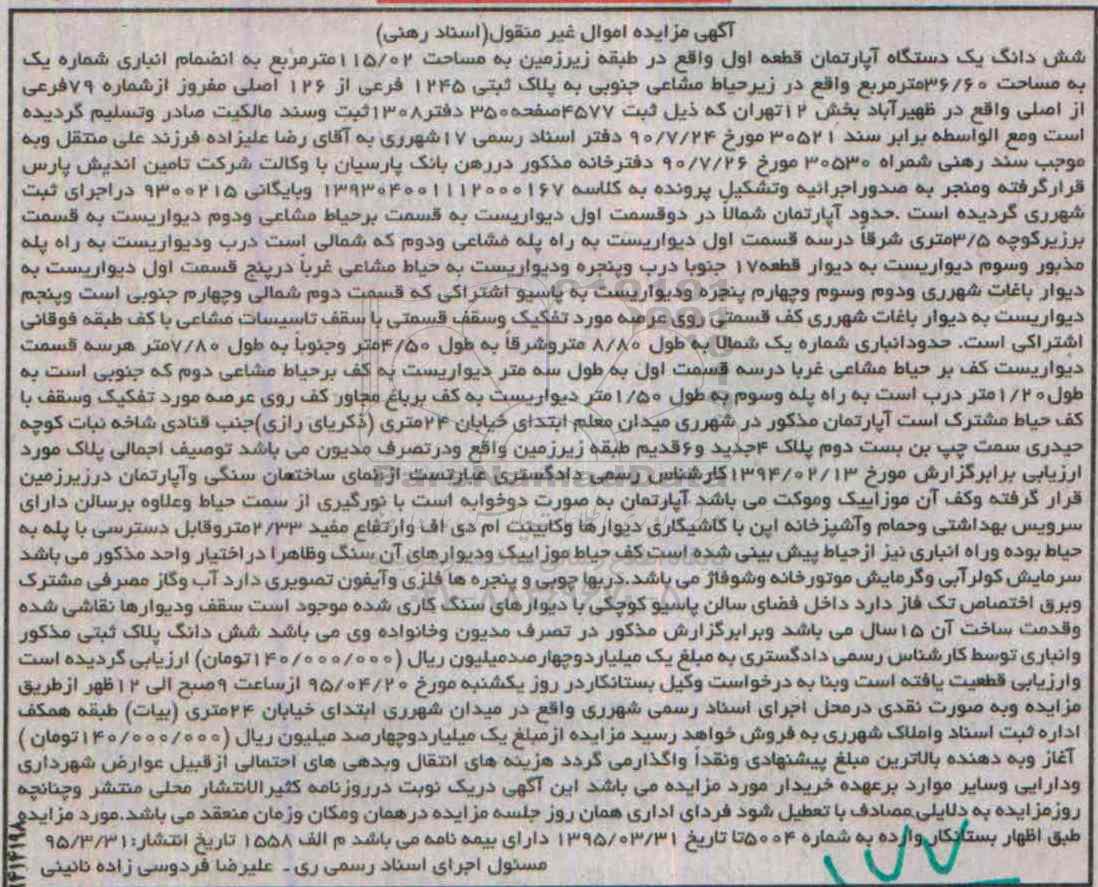 آگهی مزایده اموال غیر منقول(اسناد رهنی)
شش دانگ یک دستگاه آپارتمان قطعه اول واقع در طبقه زیرزمین به مساحت ۱۱۵/۰۲مترمربع به انضمام انباری شماره یک
به مساحت ۳۶/۶۰مترمربع واقع در زیرحیاط مشاعی جنوبی به پلاک ثبتی ۱۲۴۵ فرعی از ۱۲۶ اصلی مفروز ازشماره ۷۹فرعی
از اصلی واقع در ظهیرآباد بخش ۱۲تهران که ذیل ثبت ۴۵۷۷صفحه۳۵۰ دفتر۱۳۰۸ثبت وسند مالکیت صادر وتسلیم گردیده
است ومع الواسطه برابر سند ۳۰۵۲۱ مورخ ۹۰/۷/۲۴ دفتر اسناد رسمی ۱۷شهرری به آقای رضا علیزاده فرزند علی منتقل وبه
موجب سند رهنی شمراه ۳۰۵۳۰ مورخ ۹۰/۷/۲۶ دفترخانه مذکور دررهن بانک پارسیان با وکالت شرکت تامین اندیش پارس
قرارگرفته ومنجر به صدوراجرائیه وتشکیل پرونده به کلاسه ۱۳۹۳۰۴۰۰۱۱۱۲۰۰۰۱۶۷ وبایگانی ۹۳۰۰۲۱۵ دراجرای ثبت
شهرری گردیده است .حدود آپارتمان شمالا در دوقسمت اول دیواریست به قسمت برحیاط مشاعی ودوم دیواریست به قسمت
برزیرکوچه ۳/۵متری شرقاً درسه قسمت اول دیواریست به راه پله مشاعی ودوم که شمالی است درب ودیواریست به راه پله
مذبور وسوم دیواریست به دیوار قطعه۱۷ جنوبا درب وپنجره ودیواریست به حیاط مشاعی غرباً درپنج قسمت اول دیواریست به
دیوار باغات شهرری ودوم وسوم وچهارم پنجره ودیواریست به پاسیو اشتراکی که قسمت دوم شمالی وچهارم جنوبی است وپنجم
دیواریست به دیوار باغات شهرری کف قسمتی روی عرصه مورد تفکیک وسقف قسمتی با سقف تاسیسات مشاعی با کف طبقه فوقانی
اشتراکی است. حدودانباری شماره یک شمالا به طول ۸/۸۰ متروشرقاً به طول ۴/۵۰متر وجنوباً به طول ۷/۸۰متر هرسه قسمت
دیواریست کف بر حیاط مشاعی غربا درسه قسمت اول به طول سه متر دیواریست به کف برحیاط مشاعی دوم که جنوبی است به
طول۱/۲۰متر درب است به راه پله وسوم به طول ۱/۵۰متر دیواریست به کف برباغ مجاور کف روی عرصه مورد تفکیک وسقف با
کف حیاط مشترک است آپارتمان مذکور در شهرری میدان معلم ابتدای خیابان ۲۴متری (ذکریای رازی)جنب قنادی شاخه نبات کوچه
حیدری سمت چپ بن بست دوم پلاک ۴جدید و۶قدیم طبقه زیرزمین واقع ودرتصرف مدیون می باشد توصیف اجمالی پلاک مورد
ارزیابی برابرگزارش مورخ ۱۳۹۴/۰۲/۱۳کارشناس رسمی دادگستری عبارتست ازنمای ساختمان سنگی وآپارتمان درزیرزمین
قرار گرفته وکف آن موزاییک وموکت می باشد آپارتمان به صورت دوخوابه است با نورگیری از سمت حیاط وعلاوه برسالن دارای
سرویس بهداشتی وحمام وآشپزخانه اپن با کاشیگاری دیوارها وکابینت ام دی اف وارتفاع مفید ۲/۳۳متروقابل دسترسی با پله به
حیاط بوده وراه انباری نیز ازحیاط پیش بینی شده است کف حیاط موزاییک ودیوارهای آن سنگ وظاهرا دراختیار واحد مذکور می باشد
سرمایش کولرآبی وگرمایش موتورخانه وشوفاژ می باشد.دربها چوبی و پنجره ها فلزی وآیفون تصویری دارد آب وگاز مصرفی مشترک
وبرق اختصاص تک فاز دارد داخل فضای سالن پاسیو کوچکی با دیوارهای سنگ کاری شده موجود است سقف ودیوارها نقاشی شده
وقدمت ساخت آن ۱۵سال می باشد وبرابرگزارش مذکور در تصرف مدیون وخانواده وی می باشد شش دانگ پلاک ثبتی مذکور
وانباری توسط کارشناس رسمی دادگستری به مبلغ یک میلیاردوچهارصدمیلیون ریال (۱۴۰/۰۰۰/۰۰۰تومان) ارزیابی گردیده است
وارزیابی قطعیت یافته است وبنا به درخواست وکیل بستانکاردر روز یکشنبه مورخ ۹۵/۰۴/۲۰ ازساعت ۹صبح الی ۱۲ظهر ازطریق
مزایده وبه صورت نقدی درمحل اجرای اسناد رسمی شهرری واقع در میدان شهرری ابتدای خیابان ۲۴متری (بیات) طبقه همکف
اداره ثبت اسناد واملاک شهرری به فروش خواهد رسید مزایده ازمبلغ یک میلیاردوچهارصد میلیون ریال (۱۴۰/۰۰۰/۰۰۰تومان )
آغاز وبه دهنده بالاترین مبلغ پیشنهادی ونقداً واگذارمی گردد هزینه های انتقال وبدهی های احتمالی ازقبیل عوارض شهرداری
ودارایی وسایر موارد برعهده خریدار مورد مزایده می باشد این آگهی دریک نوبت درروزنامه کثیرالانتشار محلی منتشر وچنانچه
روزمزایده به دلایلی مصادف باتعطیل شود فردای اداری همان روز جلسه مزایده درهمان ومکان وزمان منعقد می باشد.مورد مزایده
طبق اظهار بستانکار وارده به شماره ۵۰۰۴تا تاریخ ۱۳۹۵/۰۳/۳۱ دارای بیمه نامه می باشد م الف ۱۵۵۸ تاریخ انتشار:۹۵/۳/۳۱
مسئول اجرای اسناد رسمی ری ـ علیرضا فردوسی زاده نائینی